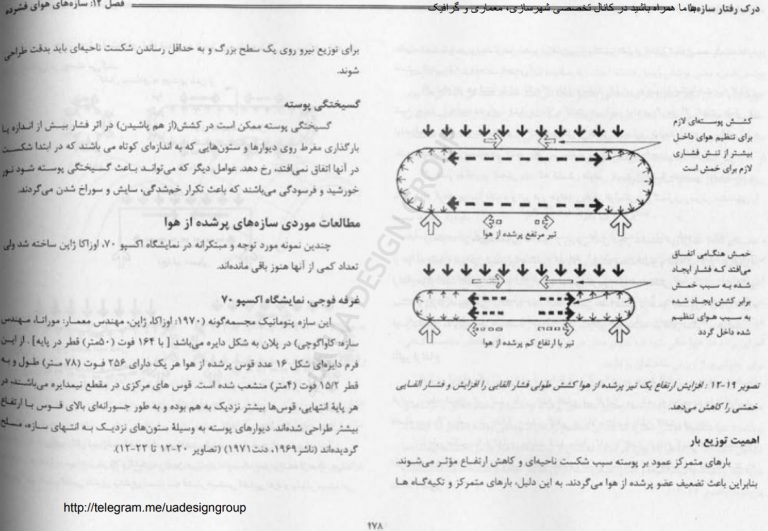 درک رفتار سازه‌ها
با ما همراه باشید در کانال تخصصی شهرسازی، معماری و گرافیک
فصل ۱۲: سازه‌های هوای فشرده
کشش پوسته‌ای لازم
برای تنظیم هوای داخل
بیشتر از تنش فشاری
لازم برای خمش است
تیر مرتفع پرشده از هوا
خمش هنگامی اتفاق
می‌افتد که فشار ایجاد
شده به سبب خمش
برابر کشش ایجاد شده
به سبب هوای تنظیم
شده داخل گردد
تیر با ارتفاع کم پرشده از هوا
تصویر ۱۹-۱۲: افزایش ارتفاع یک تیر پرشده از هوا کشش طولی فشار القایی را افزایش و فشار القایی
خمشی را کاهش می‌دهد.
اهمیت توزیع بار
بارهای متمرکز عمود بر پوسته سبب شکست ناحیه‌ای و کاهش ارتفاع مؤثر می‌شوند.
بنابراین باعث تضعیف عضو پرشده از هوا می‌گردند. به این دلیل، بارهای متمرکز و تکیه‌گاه ها
برای توزیع نیرو روی یک سطح بزرگ و به حداقل رساندن شکست ناحیه‌ای باید بدقت طراحی
شوند.
گسیختگی پوسته
گسیختگی پوسته ممکن است در کشش(از هم پاشیدن) در اثر فشار بیش از اندازه یا
بارگذاری مفرط روی دیوارها و ستون‌هایی که به اندازه‌ای کوتاه می باشند که در ابتدا شکست
در آنها اتفاق نمی‌افتد، رخ دهد. عوامل دیگر که می‌توانـد باعث گسیختگی پوسته شود نور
خورشید و فرسودگی می‌باشند که باعث تکرار خم‌شدگی، سایش و سوراخ شدن می‌گردند.
مطالعات موردی سازه‌های پرشده از هوا
چندین نمونه مورد توجه و مبتکرانه در نمایشگاه اکسپو ۷۰، اوزاکا ژاپن ساخته شد ولی
تعداد کمی از آنها هنوز باقی مانده‌اند.
غرفه فوجی، نمایشگاه اکسپو ۷۰
این سازه پنوماتیک مجسمه‌گونه (۱۹۷۰؛ اوزاکا، ژاپن، مهندس معمار: موراتا، مهندس
سازه: کاواگوچی) در پلان به شکل دایره می‌باشد [ با ۱۶۴ فوت (۵۰متر) قطر در پایه] . از ایـن
فرم دایره‌ای شکل ۱۶ عدد قوس پرشده از هوا هر یک دارای ۲۵۶ فـوت (۷۸ متر) طـول و به
قطر ۱۵/۲ فوت (۴متر) منشعب شده است. قوس های مرکزی در مقطع نیمدایره می‌باشند، در
هر پایهٔ انتهایی، قوس‌ها بیشتر نزدیک به هم بوده و به طور جسورانه‌ای بالای قـوس بـا ارتفـاع
بیشتر طراحی شده‌اند. دیوارهای پوسته به وسیلهٔ ستون‌های نزدیـک بـه انتهـای سازه، مسلح
گردیده‌اند (تاشر۱۹۶۹، دنت۱۹۷۱) (تصاویر ۲۰-۱۲ تا ۲۲-۱۲).
UA DESIGN GROUP
http://telegram.me/uadesigngroup
۲۷۸